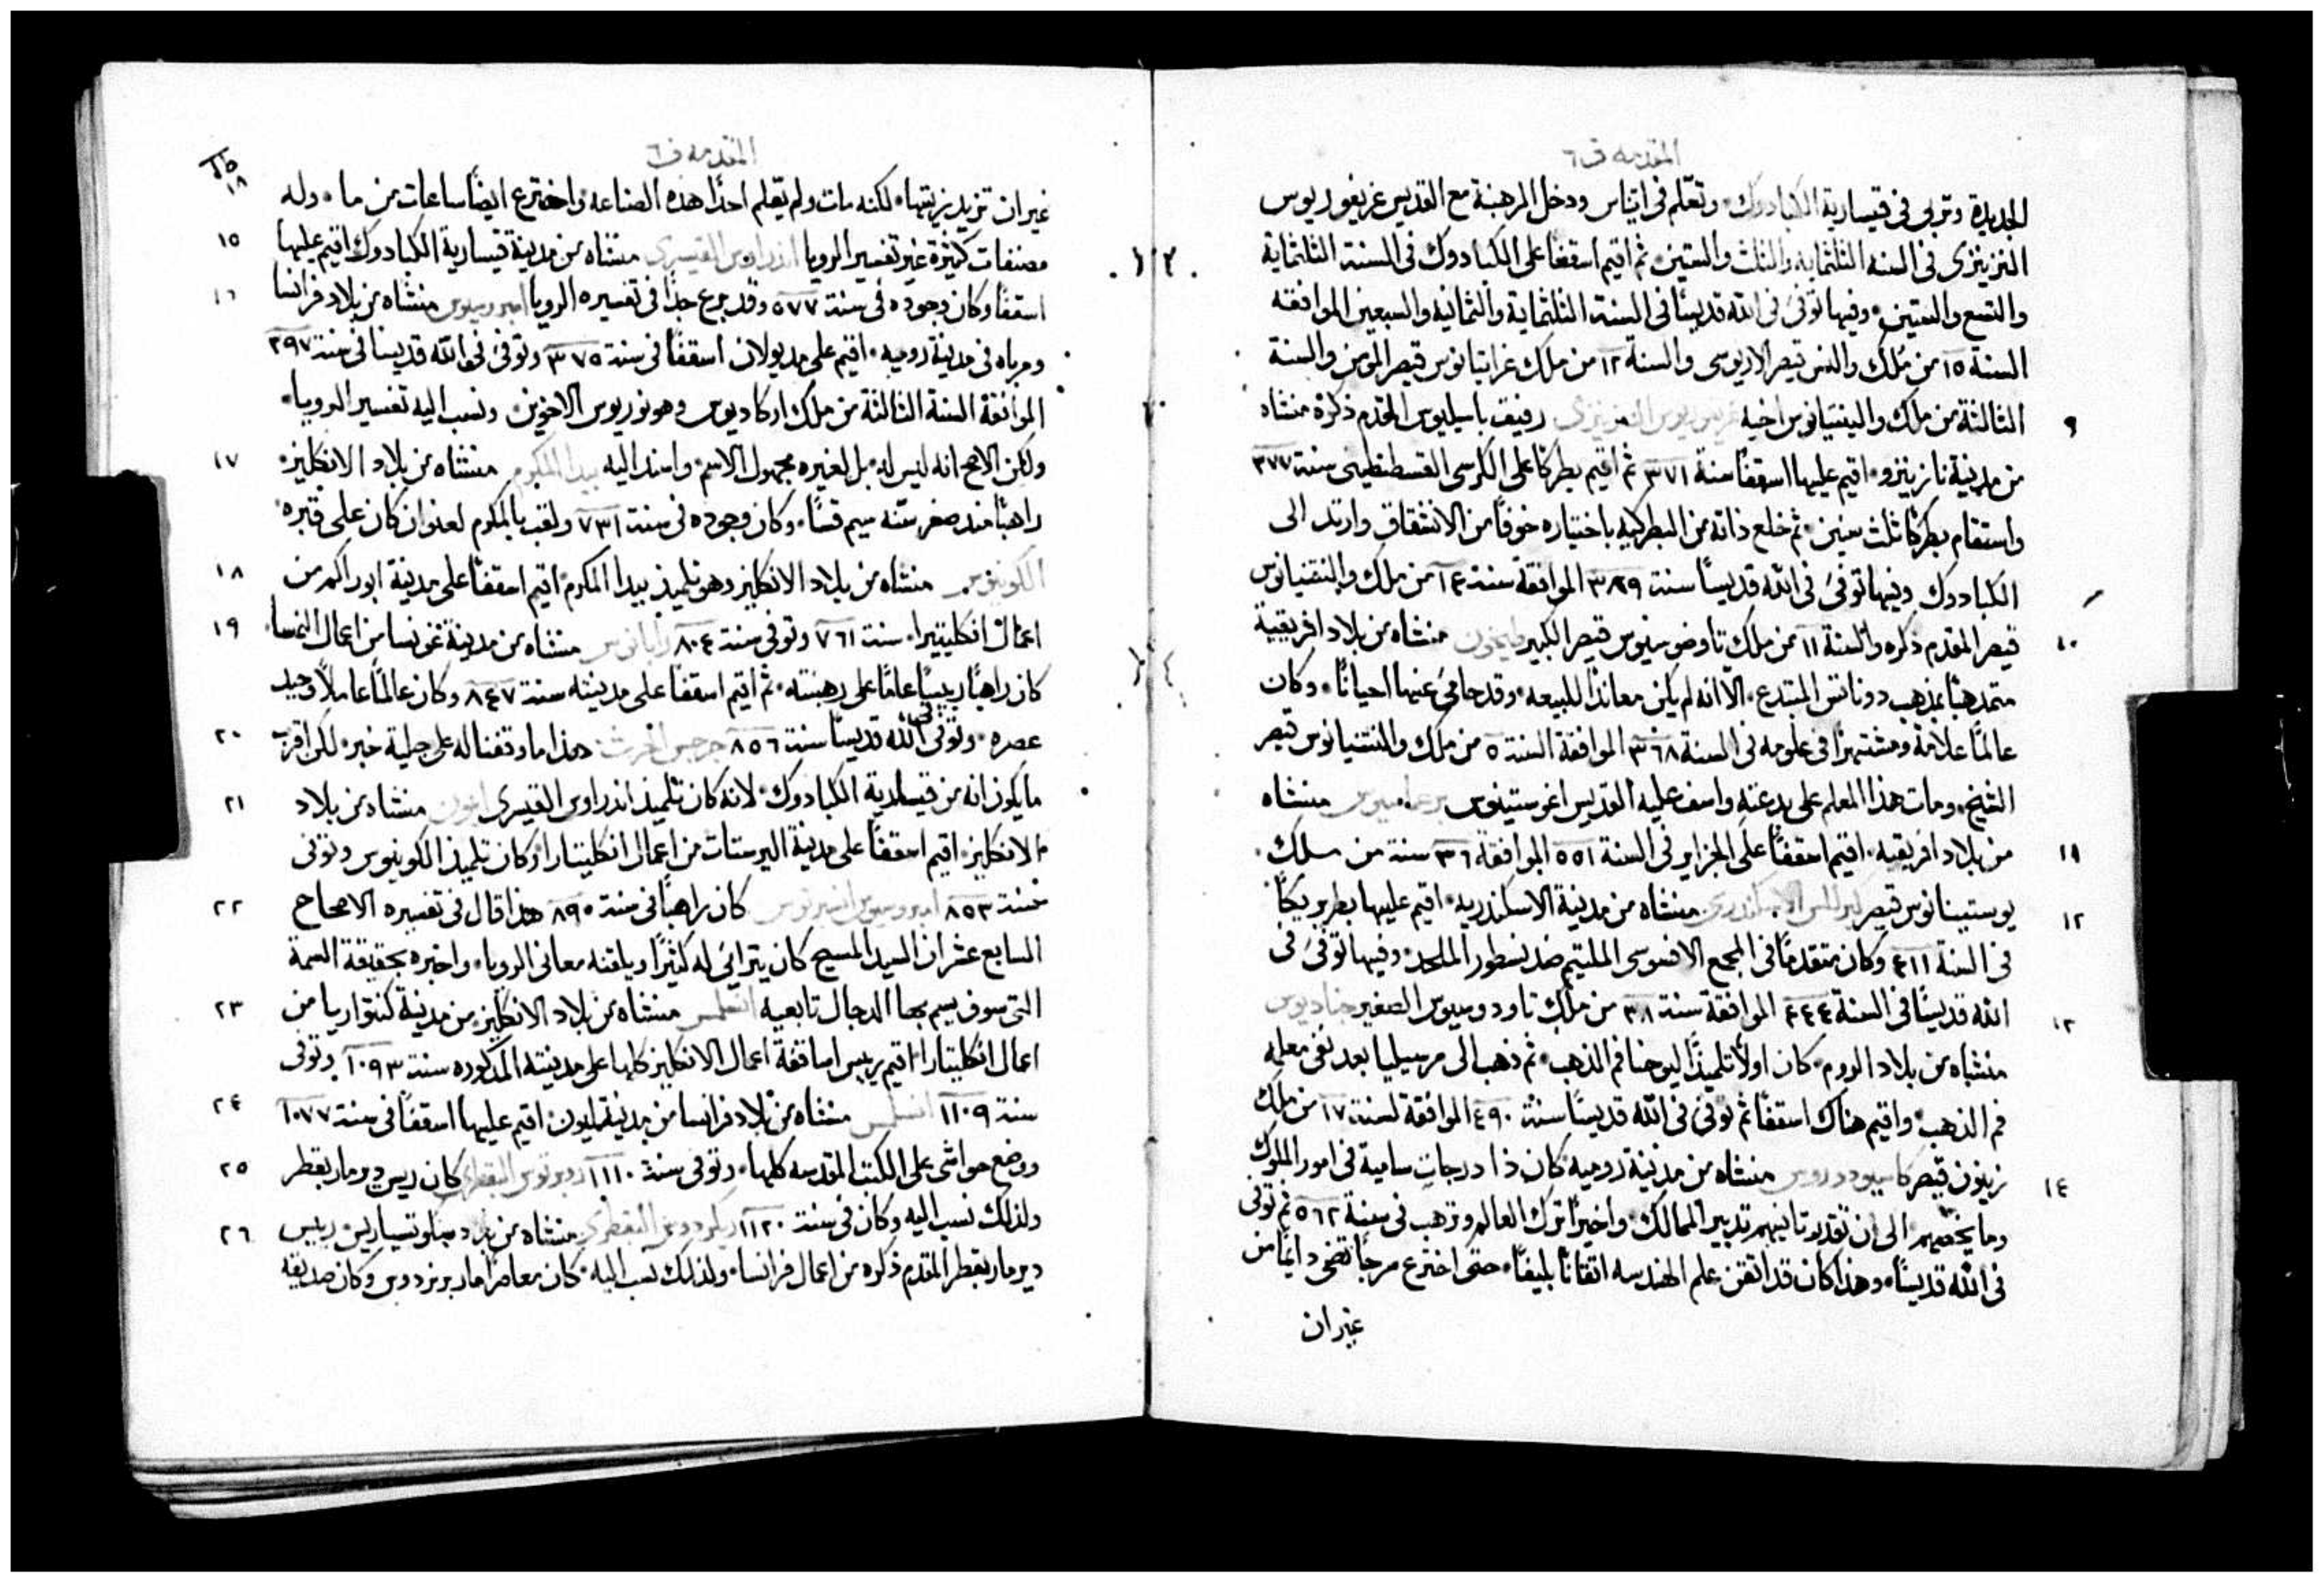 المقدمه ف٦
الجديدة وتربى فى قيسارية الكبادوك٠ وتعّلم فى اتيناس ودخل الرهبنة مع القديس غريغوريوس
النزينزى فى السنه الثلثمايه والثلث والستين٠ ثم اقيم اسقفًا على الكبادوك فى السنة الثلثماية
والتسع والستين٠ وفيها توفىَ فى الله قديسًا فى السنة الثلثماية والثمانيه والسبعين الموافقه
السنة ١٥ من مُلك والنس قيصر الاريوسى والسنة ١٢ من ملك غراتيانوس قيصر المومن والسنة
٩ الثالثة من ملك والينتيانوس اخيه غريغوريوس النزينزى رفيق باسيليوس المقدم ذكرهُ منشاه
من مدينة نازينزو٠ اقيم عليها اسقفًا سنة ٣٧١ ثم اقيم بطركًا على الكرسى القسطنطينى سنة ٣٧٧
واستقام بطركًا ثلث سنين٠ ثم خلع ذاته من البطركيه باختياره خوفًا من الانشقاق وارتد الى
الكبادوك وفيها توفىَ فى الله قديسًا سنة ٣٨٩ الموافقة سنة ١٤ من ملك والنتنيانوس
١٠ قيصر المقدم ذكره والسنة ١١ من ملك تاوضوسيوس قيصر الكبير طيخون منشاه من بلاد افريقية
متمذهبًا بمذهب دوناتس المبتدع٠ الّا انه لم يكن معاندًا للبيعه٠ وقد حامىَ عنها احيانًا٠ وكان
عالمًا علامةً ومشتهرًا فى علومه فى السنة ٣٦٨ الموافقة السنة ٥ من ملك والنتنيانوس قيصر
الشيخ٠ ومات هذا المعلم على بدعتهِ واسف عليه القديس اغوستينوس منشاه
١١ من بلاد افريقيه٠ اقيم اسقفًا على الجزاير فى السنة ٥٥١ الموافقة ٣٦ سنة من ملك
١٢ يوستينيانوس قيصر كيرللس الاسكندرى منشاه من مدينة الاسكندريه٠ اقيم عليها بطريركًا
فى السنة ٤١١ وكان متقدمًا فى المجمع الافسوسى الملتيم ضد نسطور الملحد٠ وفيها توفىَ فى
١٣ الله قديسًا فى السنة ٤٤٤ الموافقة سنة ٣٨ من ملك تاودوسيوس الصغير جناديوس
منشاه من بلاد الروم٠ كان اولًا تلميذًا ليوحنا فم الذهب٠ ثم ذهب الى مرسيليا بعد نفى معلمه
فم الذهب٠ واقيم هناك اسقفًا ثم توفىَ فى الله قديسًا سنة ٤٩٠ الموافقة لسنة ١٧ من ملك
١٤ زينون قيصر كاسيودوروس منشاه من مدينة روميه كان ذا درجات سامية فى امور الملوك
وما يخصهم الى ان تقدم تانيهم تدبير الممالك٠ واخيرًا ترك العالم وترهب فى سنة ٥٦٢ ثم توفى
فى الله قديسًا٠ وهذا كان قد اتقن علم الهندسه اتقانًا بليغًا٠ حتى اخترع سرجًا تضى دايمًا من
غيران
المقدمه ف٦
١٨
غيران تزيد زيتها٠ لكنه مات ولم يعلم احدًا هذه الصناعه٠ واخترع ايضًا ساعات من ما٠ وله
١٥ مصنفات كثيرة غير تفسير الرويا اندراوس القيسرى منشاه من مدينة قيسارية الكبادوك اقيم عليها
١٦ اسقفًا وكان وجوده فى سنة ٥٧٧ وقد برع جدًّا فى تفسيره الرويا امبروسيوس منشاه من بلاد فرانسا
ومرباه فى مدينة روميه٠ اقيم على مديولان اسقفًا فى سنة ٣٧٥ وتوفىَ فى الله قديسًا فى سنة ٣٩٧
الموافقة السنة الثالثة من ملك اركاديوس وهونوريوس الاخوين٠ ونسب اليه تفسير الرويا٠
١٧ ولكن الاصح انه ليس له٠ بل لغيره مجهول الاسم٠ واسند اليه بيدا المكرم منشاه من بلاد الانكليز٠
راهبًا منذ صغر سنّه سيم قسًا٠ وكان وجوده فى سنة ٧٣١ ولقب بالمكرم لعنوان كان على قبره٠
١٨ الكوينوس منشاه من بلاد الانكليز وهو تلميذ بيدا المكرم٠ اقيم اسقفًا على مدينة ابوراكم من
١٩ اعمال انكليتيرا٠ سنة ٧٦١ وتوفى سنة ٨٠٤ رابانوس منشاه من مدينة غونسا من اعمال النمسا٠
كان راهبًا ريسًا عامًا على رهبنته٠ ثم اقيم اسقفًا على مدينته سنة ٨٤٧ وكان عالمًا عاملًا وحيد
٢٠ عصره٠ وتوفى فى الله قديسًا سنة ٨٥٦ جرجس اخرث هذا ما وقفنا له على جلية خبر٠ لكن اقرب
٢١ ما يكون انه من قيسارية الكبادوك٠ لانه كان تلميذ اندراوس القيسرى منشاه من بلاد
الانكليز٠ اقيم اسقفًا على مدينة البرستات من اعمال انكليتارا٠ وكان تلميذ الكوينوس وتوفى
٢٢ سنة ٨٥٣ امبروسيوس انسبرتوس كان راهبًا فى سنة ٨٩٠ هذا قال فى تفسيره الاصحاح
السابع عشر ان السيد المسيح كان يترائىَ له كثيرًا ويلقنه معانى الرويا٠ واخبره بحقيقة السمة
٢٣ التى سوف يسم بها الدجال تابعيه انسلمس منشاه من بلاد الانكليز٠ من مدينة كنتواريا من
اعمال انكليتارا٠ اقيم رييس اساقفة اعمال الانكليز كلها على مدينته المذكوره سنة ١٠٩٣ وتوفى
٢٤ سنة ١١٠٩ انسلمس منشاه من بلاد فرانسا من مدينة ليون٠ اقيم عليها اسقفًا فى سنة ١٠٧٧
٢٥ ووضع حواشى على الكتب المقدسه كلها٠ وتوفى سنة ١١١٠ روبرتوس البقطرى كان ريس دير مار بقطر
٢٦ ولذلك نسب اليه وكان فى سنة ١١٢٠ ريكردوس البقطرى منشاه من بلاد رييس
دير مار بقطر المقدم ذكره من اعمال فرانسا٠ ولذلك نسب اليه٠ كان معاصرًا مار برنردوس وكان صديقه